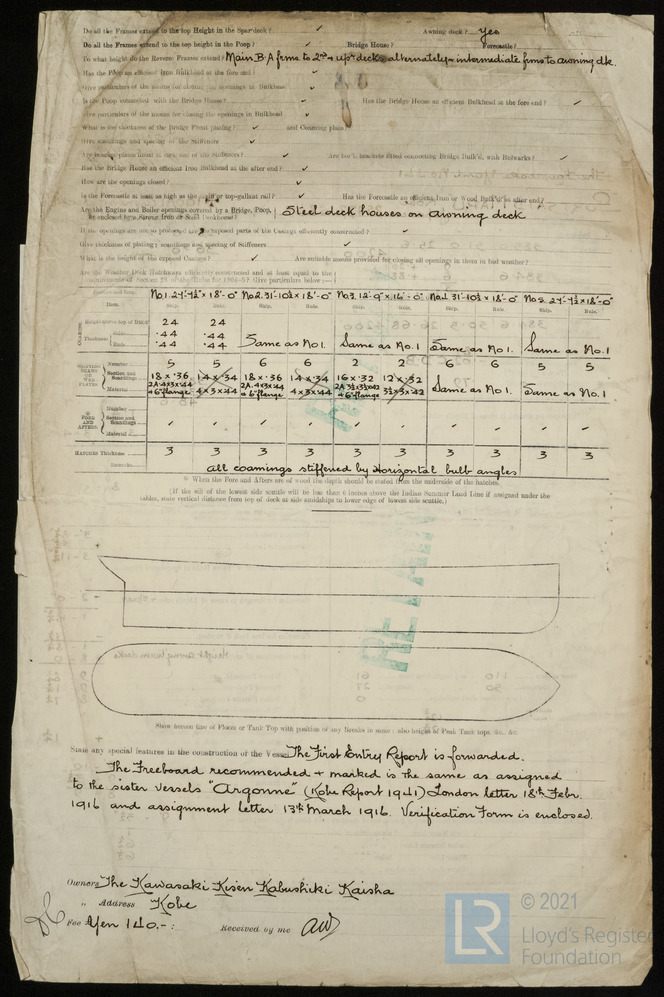 Do all the Frames extend to the top Height in the Spar deck? ✓ Awning deck? yes
Do all the Frames extend to the top height in the Poop? ✓ Bridge House? Forecastle?
To what height do the Reverse Frames extend? Main B.A frms to 2nd & upr decks alternately & intermediate frms to awning dk.
Has the Poop an efficient Iron Bulkhead at the fore end? ✓
Give particulars of the means for closing the openings in Bulkhead ✓
Is the Poop connected with the Bridge House? ✓ Has the Bridge House an efficient Bulkhead at the fore end? ✓
Give particulars of the means for closing the openings in Bulkhead ✓
What is the thickness of the Bridge Front plating? ✓ and Coaming plate? ✓
Give scantlings and spacing of the Stiffeners ✓
Are bracket plates fitted at each end of the Stiffeners? ✓ Are bracket plates fitted connecting Bridge Bulk'd. with Bulwarks? ✓
Has the Bridge House an efficient Iron Bulkhead at the after end? ✓
How are the openings closed? ✓
Is the Forecastle at least as high as the main or top-gallant rail? ✓ Has the Forecastle an efficient Iron or Wood Bulk'd at after end? ✓
Are the Engine and Boiler openings covered by a Bridge, Poop, Steel deck houses on awning deck
If the openings are not so protected are exposed parts of the Casings efficiently constructed? ✓
Give thickness of plating; scantlings and spacing of Stiffeners ✓
What is the height of the exposed Casings? ✓ Are suitable means provided for closing all openings in them in bad weather? ✓
Are the Weather Deck Hatchways efficiently constructed and at least equal to the
requirements of Section of the Rules for 1904-5? Give particulars below:—
No.1. 27'-7½" x 18'-0" No.2. 31'-10½ x 18'-0" No.3. 12'-9" x 16'-0" No.4. 31'-10½ x 18'-0" No.5. 27'-7½ x 18'-0"
Item. Ship. Rule. Ship. Rule. Ship. Rule. Ship. Rule. Ship. Rule.
Height above top of Deck 24 24
.44 .44 Same as No.1 Same as No.1 Same as No.1. Same as No.1
.44 .44
Number 5 5 6 6 2 2 6 6 5 5
Section and Scantlings 18 x .36 14 x .34 18 x .36 14 x .34 16 x .32 12 x .32
Material 4 x 3 x .44 4 x 3 x .44 Same as No.1. Same as No.1.
& 6" flange & 6" flange & 6" flange
FORE AND AFTERS. Number
Section and Scantlings ✓ ✓ ✓ ✓ ✓ ✓ ✓ ✓ ✓ ✓
Material
Hatches Thickness 3 3 3 3 3 3 3 3 3 3
Remarks all coamings stiffened by Horizontal bulb angles
* When the Fore and Afters are of wood the depth should be stated from the underside of the hatches.
(If the sill of the lowest side scuttle will be less than 6 inches above the Indian Summer Load Line if assigned under the
tables, state vertical distance from top of deck at side amidships to lower edge of lowest side scuttle.)
Show hereon line of Floors or Tank Top with position of any breaks in same: also height of Peak Tank tops, &c., &c.
State any special features in the construction of the Vessel The First Entry Report is forwarded.
The Freeboard recommended & marked is the same as assigned
to the sister vessels "Argonne" (Kobe Report 1941) London letter 18th Febr.
1916 and assignment letter 13th March 1916. Verification Form is enclosed.
Owners The Kawasaki Kisen Kabushiki Kaisha
" Address Kobe
Fee Yen 140.-: Received by me
© 2021
LR Lloyd's Register
Foundation